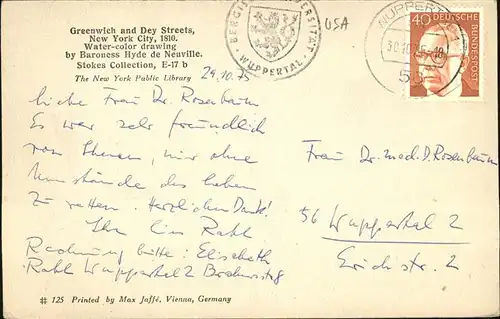 Greenwich and Dey Streets,
New York City, 1810.
Water-color drawing
by Baroness Hyde de Neuville.
Stokes Collection, E-17 b
The New York Public Library
USA
WUPPERTAL
WUPPERTAL
30.10.75-18
56
40 DEUTSCHE
BUNDESPOST
29.10.75
Liebe Frau Dr. Rosenbaum
Es war sehr freundlich
von Ihnen, mir ohne
Umstände das Leben
zu retten. Herzlichen Dank!
Ihr
Rechnung bitte: Elisabeth
Wuppertal 2
Frau Dr. med. D. Rosenbaum
56 Wuppertal 2
Erichstr. 2
# 125 Printed by Max Jaffé, Vienna, Germany